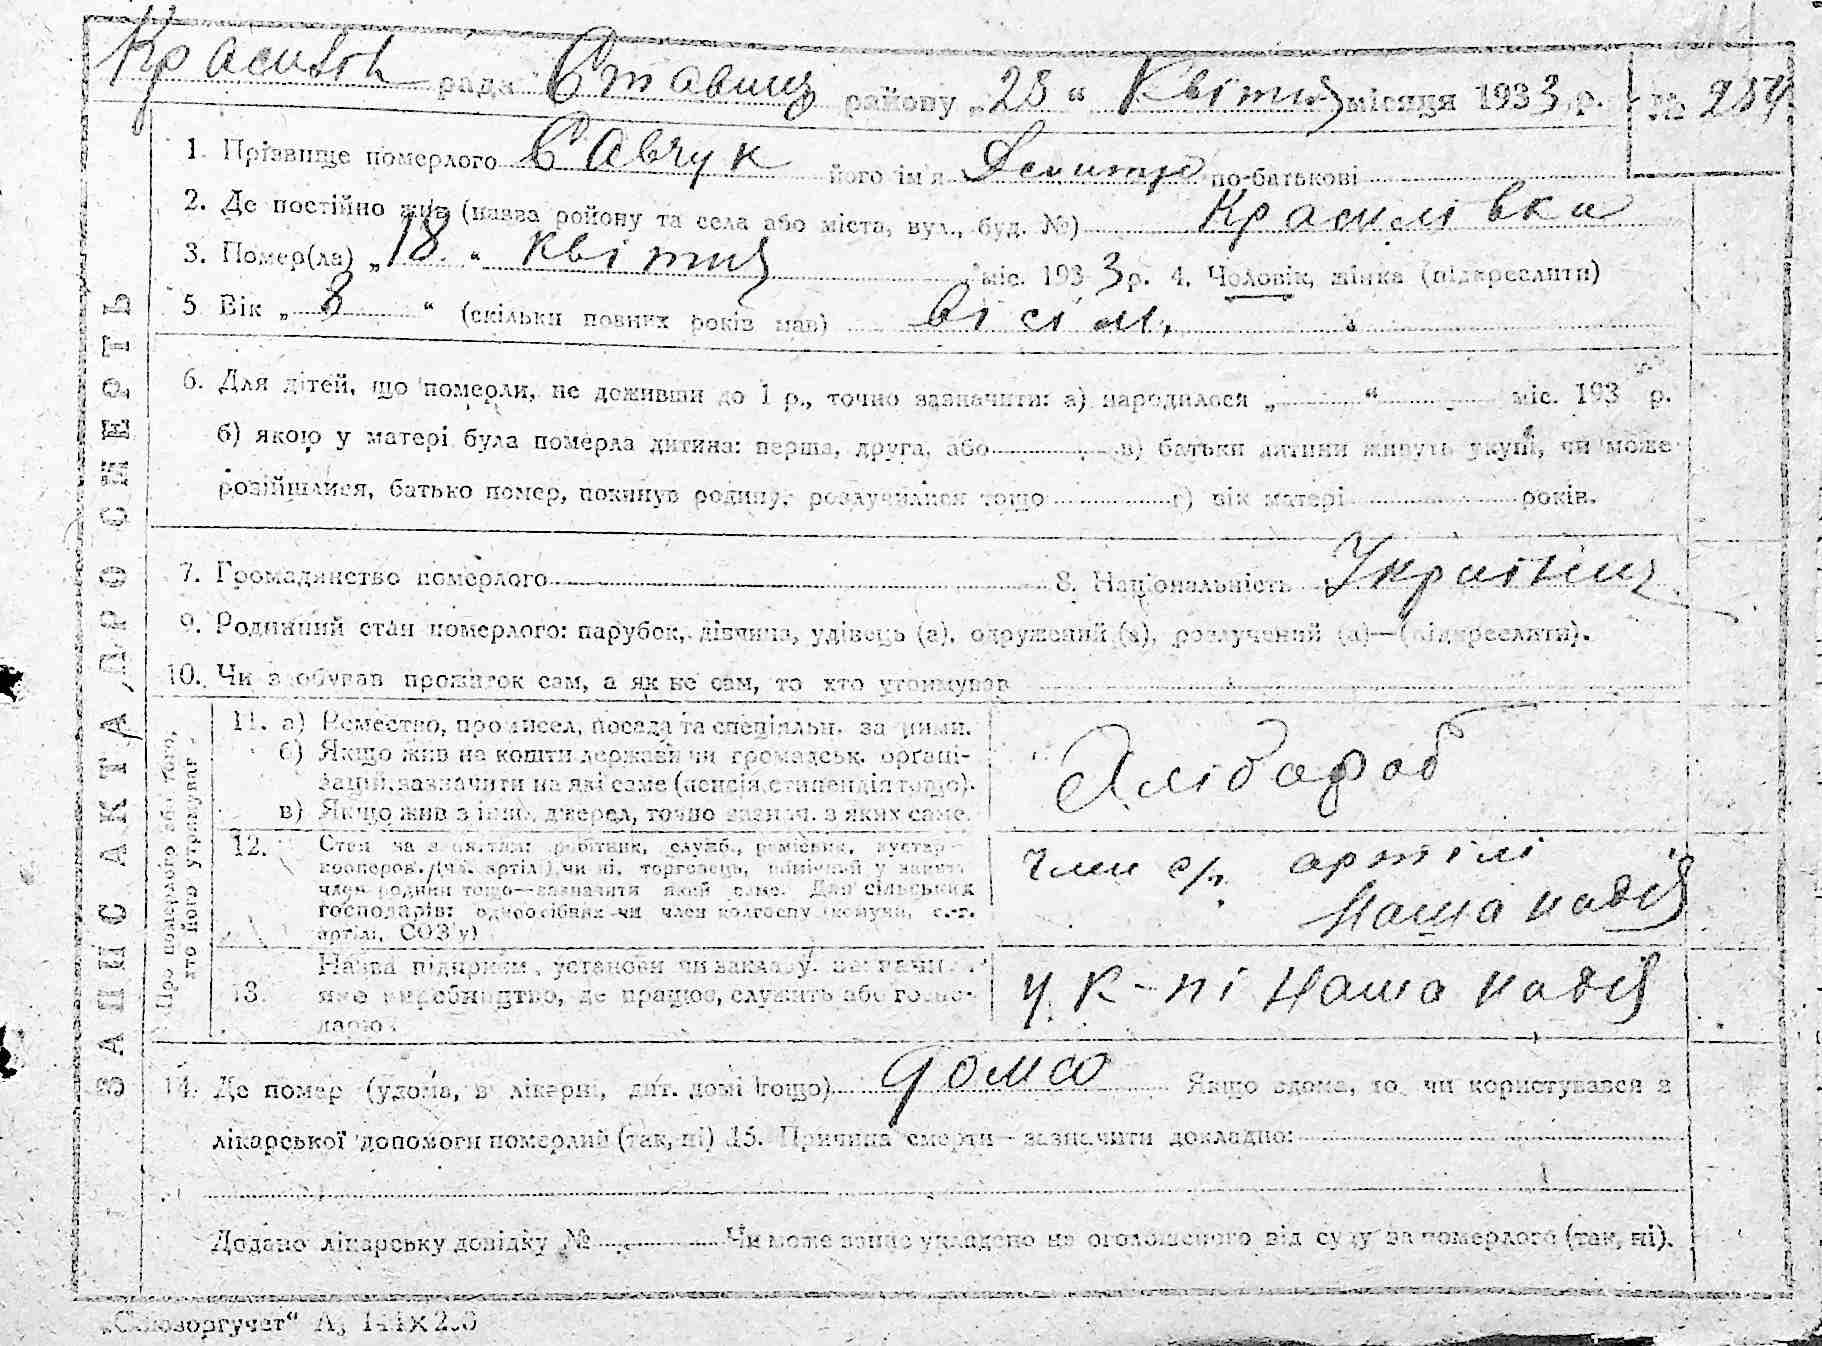 Красилівс рада Ставищ району „28“ Квітня місяця 1933 р. № 254
1. Прізвище померлого Савчук його ім'я Дмитро по-батькові
2. Де постійно жив (назва району та села або міста, вул., буд. №) Красилівка
3. Помер(ла) „18“ квітня міс. 1933 р. 4. Чоловік, жінка (підкреслити)
5 Вік „8“ (скільки повних років мав) вісім
6. Для дітей, що померли, не доживши до 1 р., точно зазначити: а) народилося „ “ міс. 193 р.
б) якою у матері була померла дитина: перша, друга, або в) батьки дитини живуть укупі, чи може
розійшлися, батько помер, покинув родину, розлучилися тощо г) вік матері років.
7. Громадянство померлого 8. Національність Українець
9. Родинний стан померлого: парубок, дівчина, удівець (а), одружений (а), розлучений (а)—(підкреслити).
10. Чи здобував прожиток сам, а як не сам, то хто утримував
ЗАПИС АКТА ПРО СМЕРТЬ
Про померлого або того,
хто його утримував
11. а) Ремество, промисел, посада та спеціяльн. за ними.
б) Якщо жив на кошти держави чи громадськ. органі-
зацій, зазначити на які саме (пенсія, стипендія тощо).
в) Якщо жив з інш. джерел, точно зазнач. з яких саме.
Хлібороб
12. Стан за занятт.: робітник, служб., ремісник, кустар
кооперов. (чл. артілі) чи ні, торговець,
член родини тощо—зазначити який саме. Для сільських
господарів: одноосібник чи член колгоспу (комуни, с.-г.
артілі, СОЗ'у)
член с/г. артілі
Наша надія
13. Назва підприєм., установи чи закладу,
яке виробництво, де працює, служить або госпо-
дарює
у к-пі Наша надія
14. Де помер (удома, в лікарні, дит. домі тощо) дома Якщо вдома, то чи користувався з
лікарської допомоги померлий (так, ні) 15. Причина смерти—зазначити докладно:
Додано лікарську довідку № Чи може запис укладено не оголошеного від суду за померлого (так, ні).
„Союзоргучет“